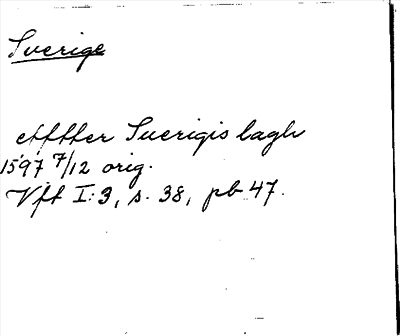 Sverige
effther Suerigis laghv
1597 7/12 orig.
Vft I:3, s. 38, pb 47.